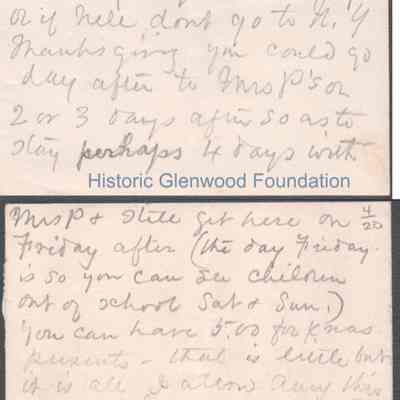 or if Nell dont go to N. Y
Thanksgiving you could go
day after to Mrs P's on
2 or 3 days after so as to
stay perhaps 4 days with
Historic Glenwood Foundation
Mrs P & still get here on 4/20
Friday after (the day Friday
is so you can see children
out of school Sat & Sun.)
You can have 5.00 for Xmas
presents - that is little but
it is all I allow Amy this